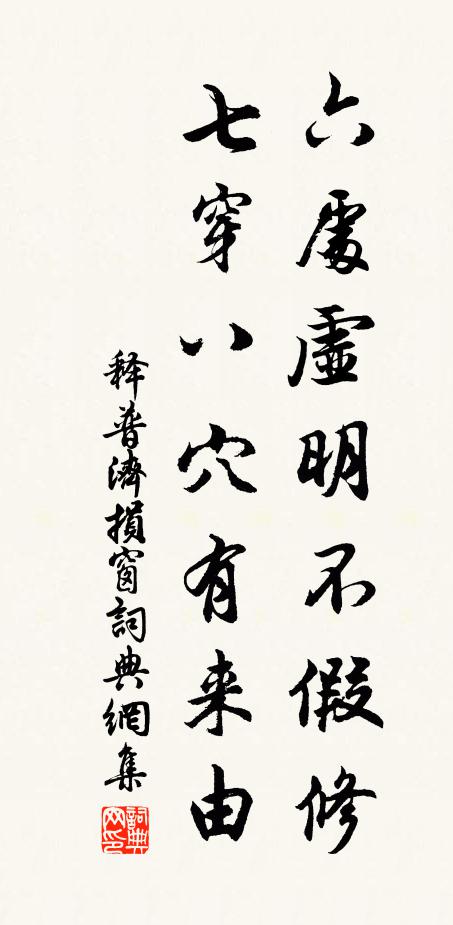 六處虛明不假修
七穿八穴有来由
释普濟損窗詞典網集
詞典网印